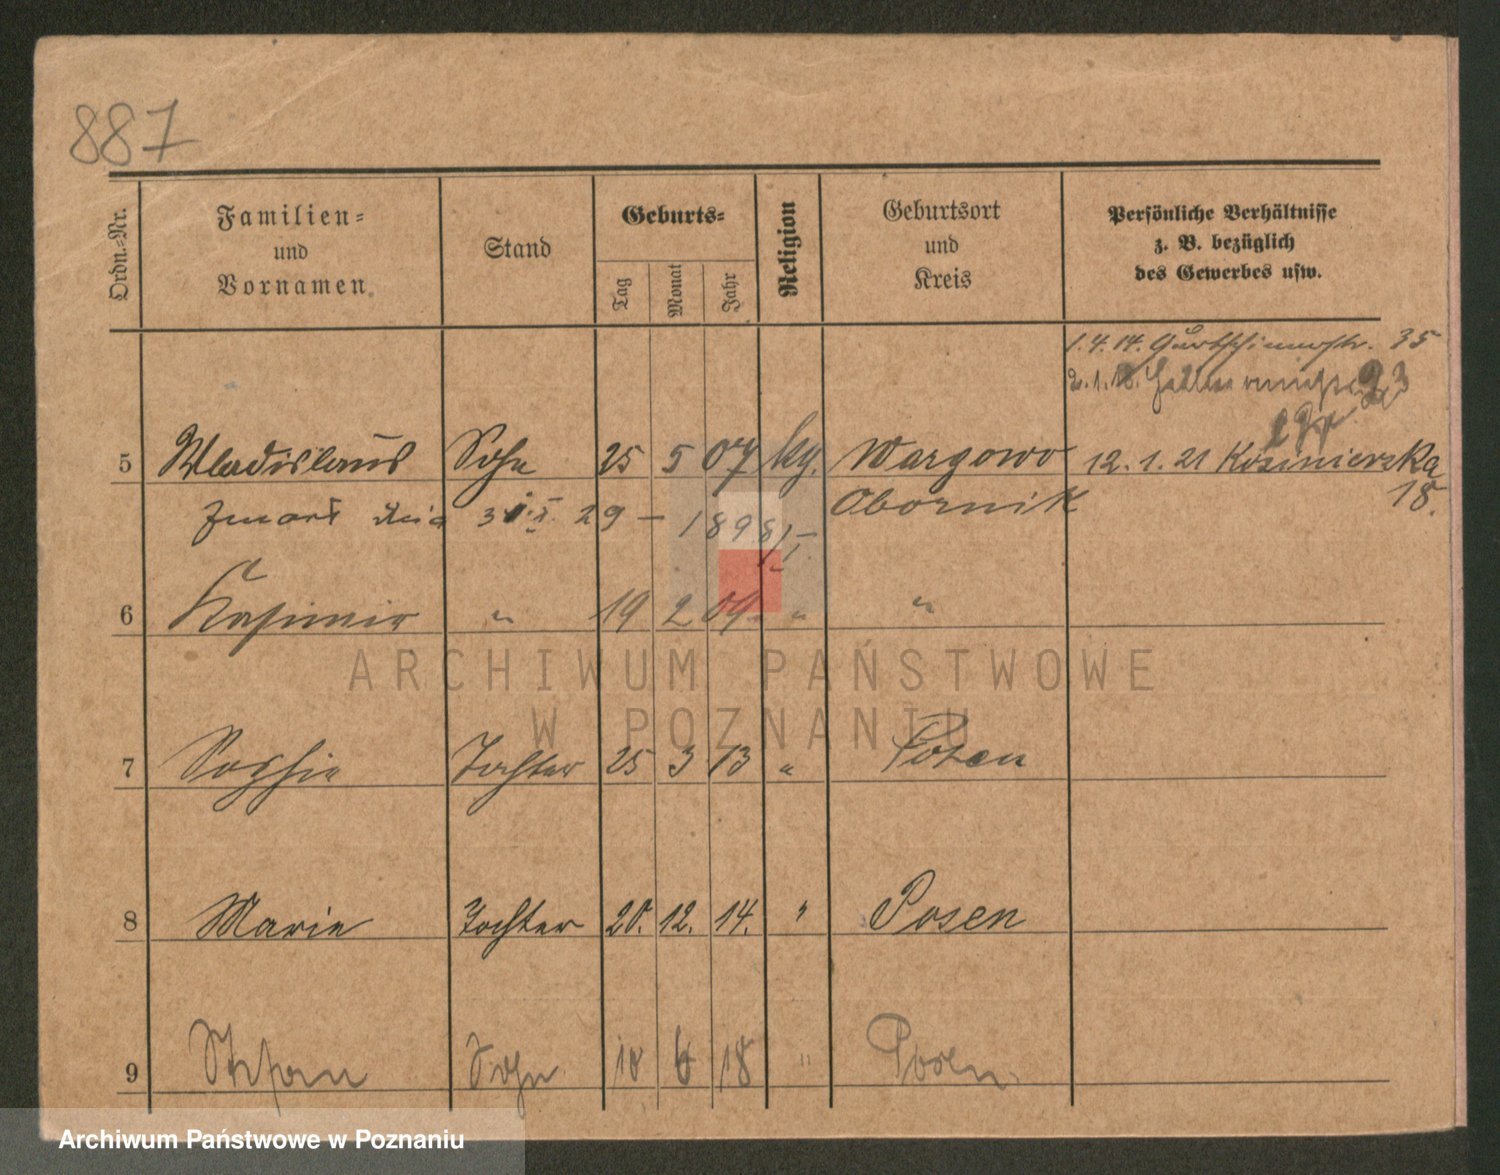 887
Ordn.-Nr.
Familien-
und
Vornamen.
Stand
Geburts-
Tag
Monat
Jahr
Religion
Geburtsort
und
Kreis
Persönliche Verhältnisse
z. B. bezüglich
des Gewerbes usw.
1. 4. 14. 35
5 Wladislaus Sohn 25 5 07 kg. Wargowo 12. 1. 21 Kosinierska
Obornik 18.
zmarł dnia 29 – 1898/I.
6 Kasimir " 19 2 09 " "
ARCHIWUM PAŃSTWOWE
W POZNANIU
7 Sophie Tochter 25 3 13 " Posen
8 Marie Tochter 20. 12. 14. " Posen
9 Stefan Sohn 18 6 18 " Posen
Archiwum Państwowe w Poznaniu